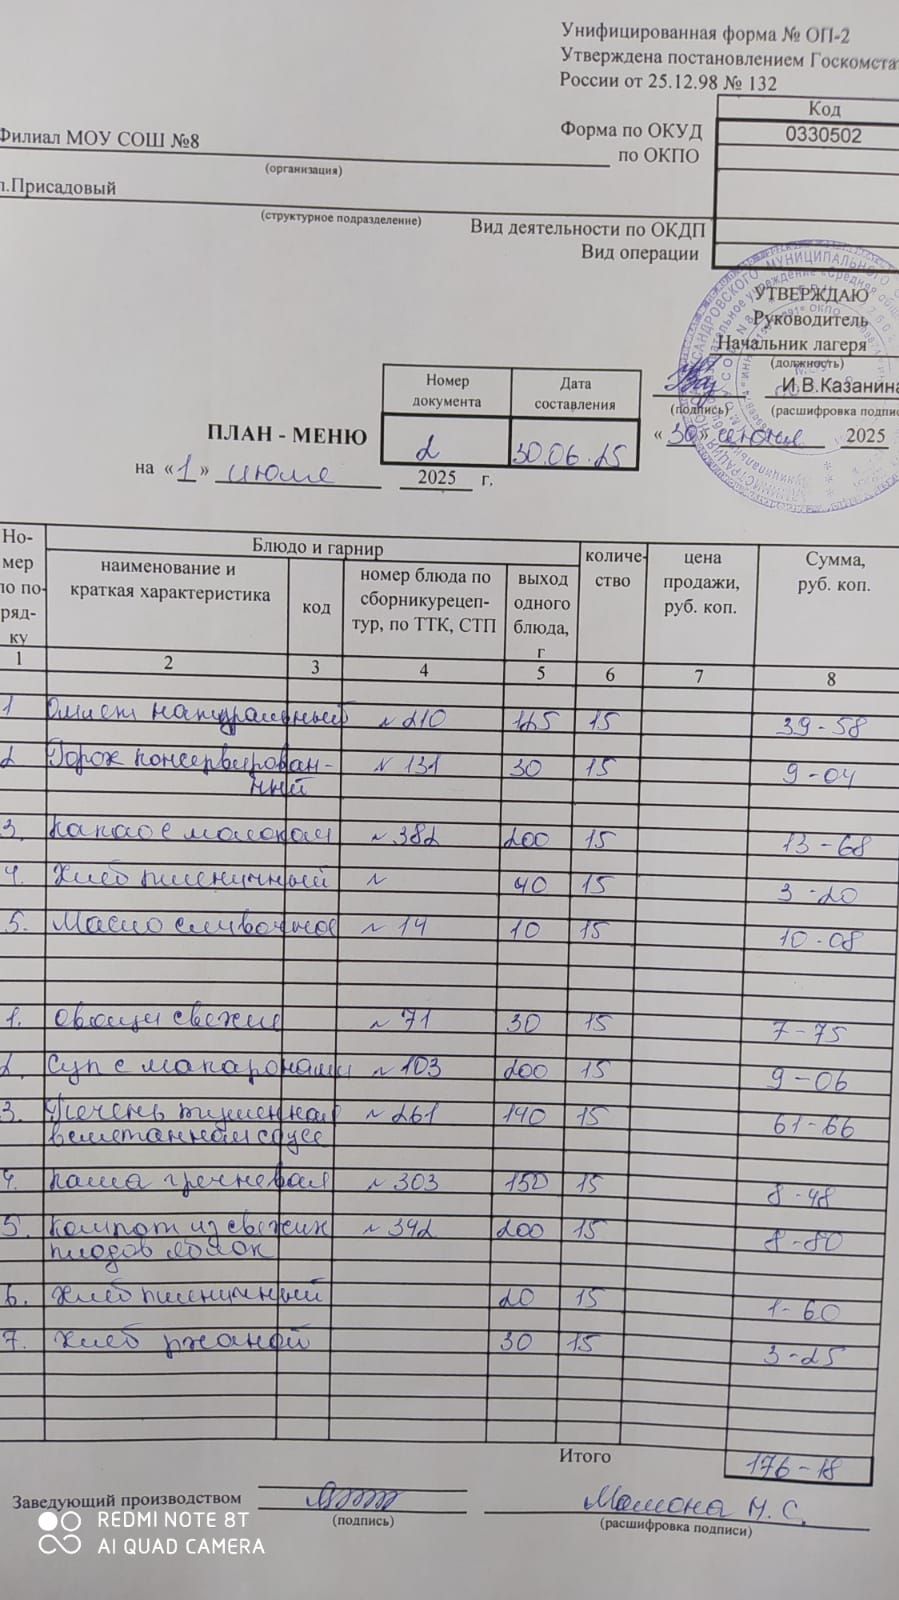 Унифицированная форма № ОП-2
Утверждена постановлением Госкомста
России от 25.12.98 № 132
Код
Форма по ОКУД 0330502
Филиал МОУ СОШ №8
по ОКПО
(организация)
п.Присадовый
(структурное подразделение)
Вид деятельности по ОКДП
Вид операции
УТВЕРЖДАЮ
Руководитель
Начальник лагеря
(должность)
И.В.Казанина
(подпись) (расшифровка подпис
«30» июня 2025
Номер документа
Дата составления
ПЛАН - МЕНЮ 2 30.06.25
на «1» июля 2025 г.
Но-мер по по-ряд-ку
Блюдо и гарнир
наименование и краткая характеристика
код
номер блюда по сборникурецеп-тур, по ТТК, СТП
выход одного блюда, г
количе-ство
цена продажи, руб. коп.
Сумма, руб. коп.
1 2 3 4 5 6 7 8
1 Омлет натуральный №210 125 15 39-58
2 Горох консервирован-
ный №131 30 15 9-04
3. Какао с молоком №382 200 15 13-68
4. Хлеб пшеничный № 40 15 3-20
5. Масло сливочное №14 10 15 10-08
1. Овощи свежие №71 30 15 7-75
2. Суп с макаронами №103 200 15 9-06
3. Печень тушенная №261 140 15 61-66
в сметанном соусе
4. Каша гречневая №303 150 15 8-48
5. Компот из свежих №342 200 15 8-80
плодов яблок
6. Хлеб пшеничный 20 15 1-60
7. Хлеб ржаной 30 15 3-25
Итого 176-18
Заведующий производством Мамона М.С.
(подпись) (расшифровка подписи)
REDMI NOTE 8T
AI QUAD CAMERA